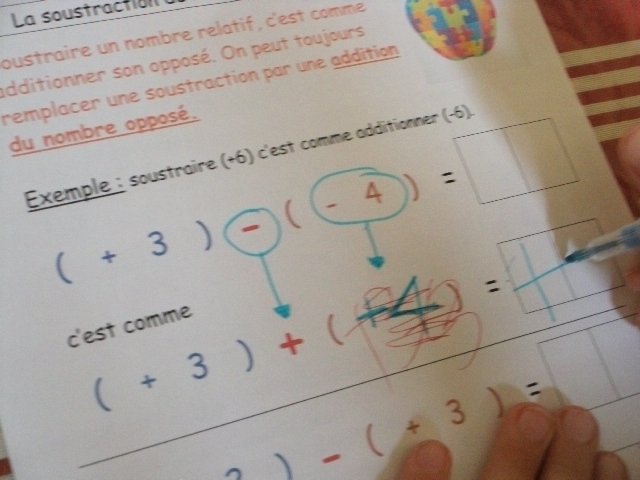 La soustraction
soustraire un nombre relatif, c'est comme
additionner son opposé. On peut toujours
remplacer une soustraction par une addition
du nombre opposé.
Exemple : soustraire (+6) c'est comme additionner (-6).
( + 3 ) - ( - 4 ) =
c'est comme
( + 3 ) + ( +4 ) = +
) - ( + 3 ) =